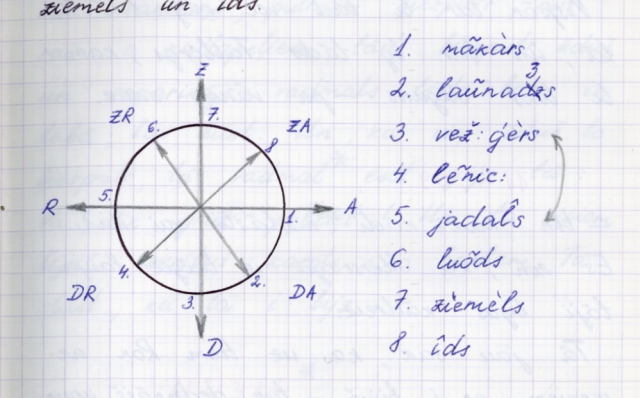 ziemels un īds.
Z
ZR 6. 7. ZA
8
R 5. 1. A
4. 2.
DR 3. DA
D
1. mãkàrs
2. laũnadzs
3
3. vež: ģèrs
4. lẽnic:
5. jadal̂s
6. luõds
7. ziemèls
8. îds